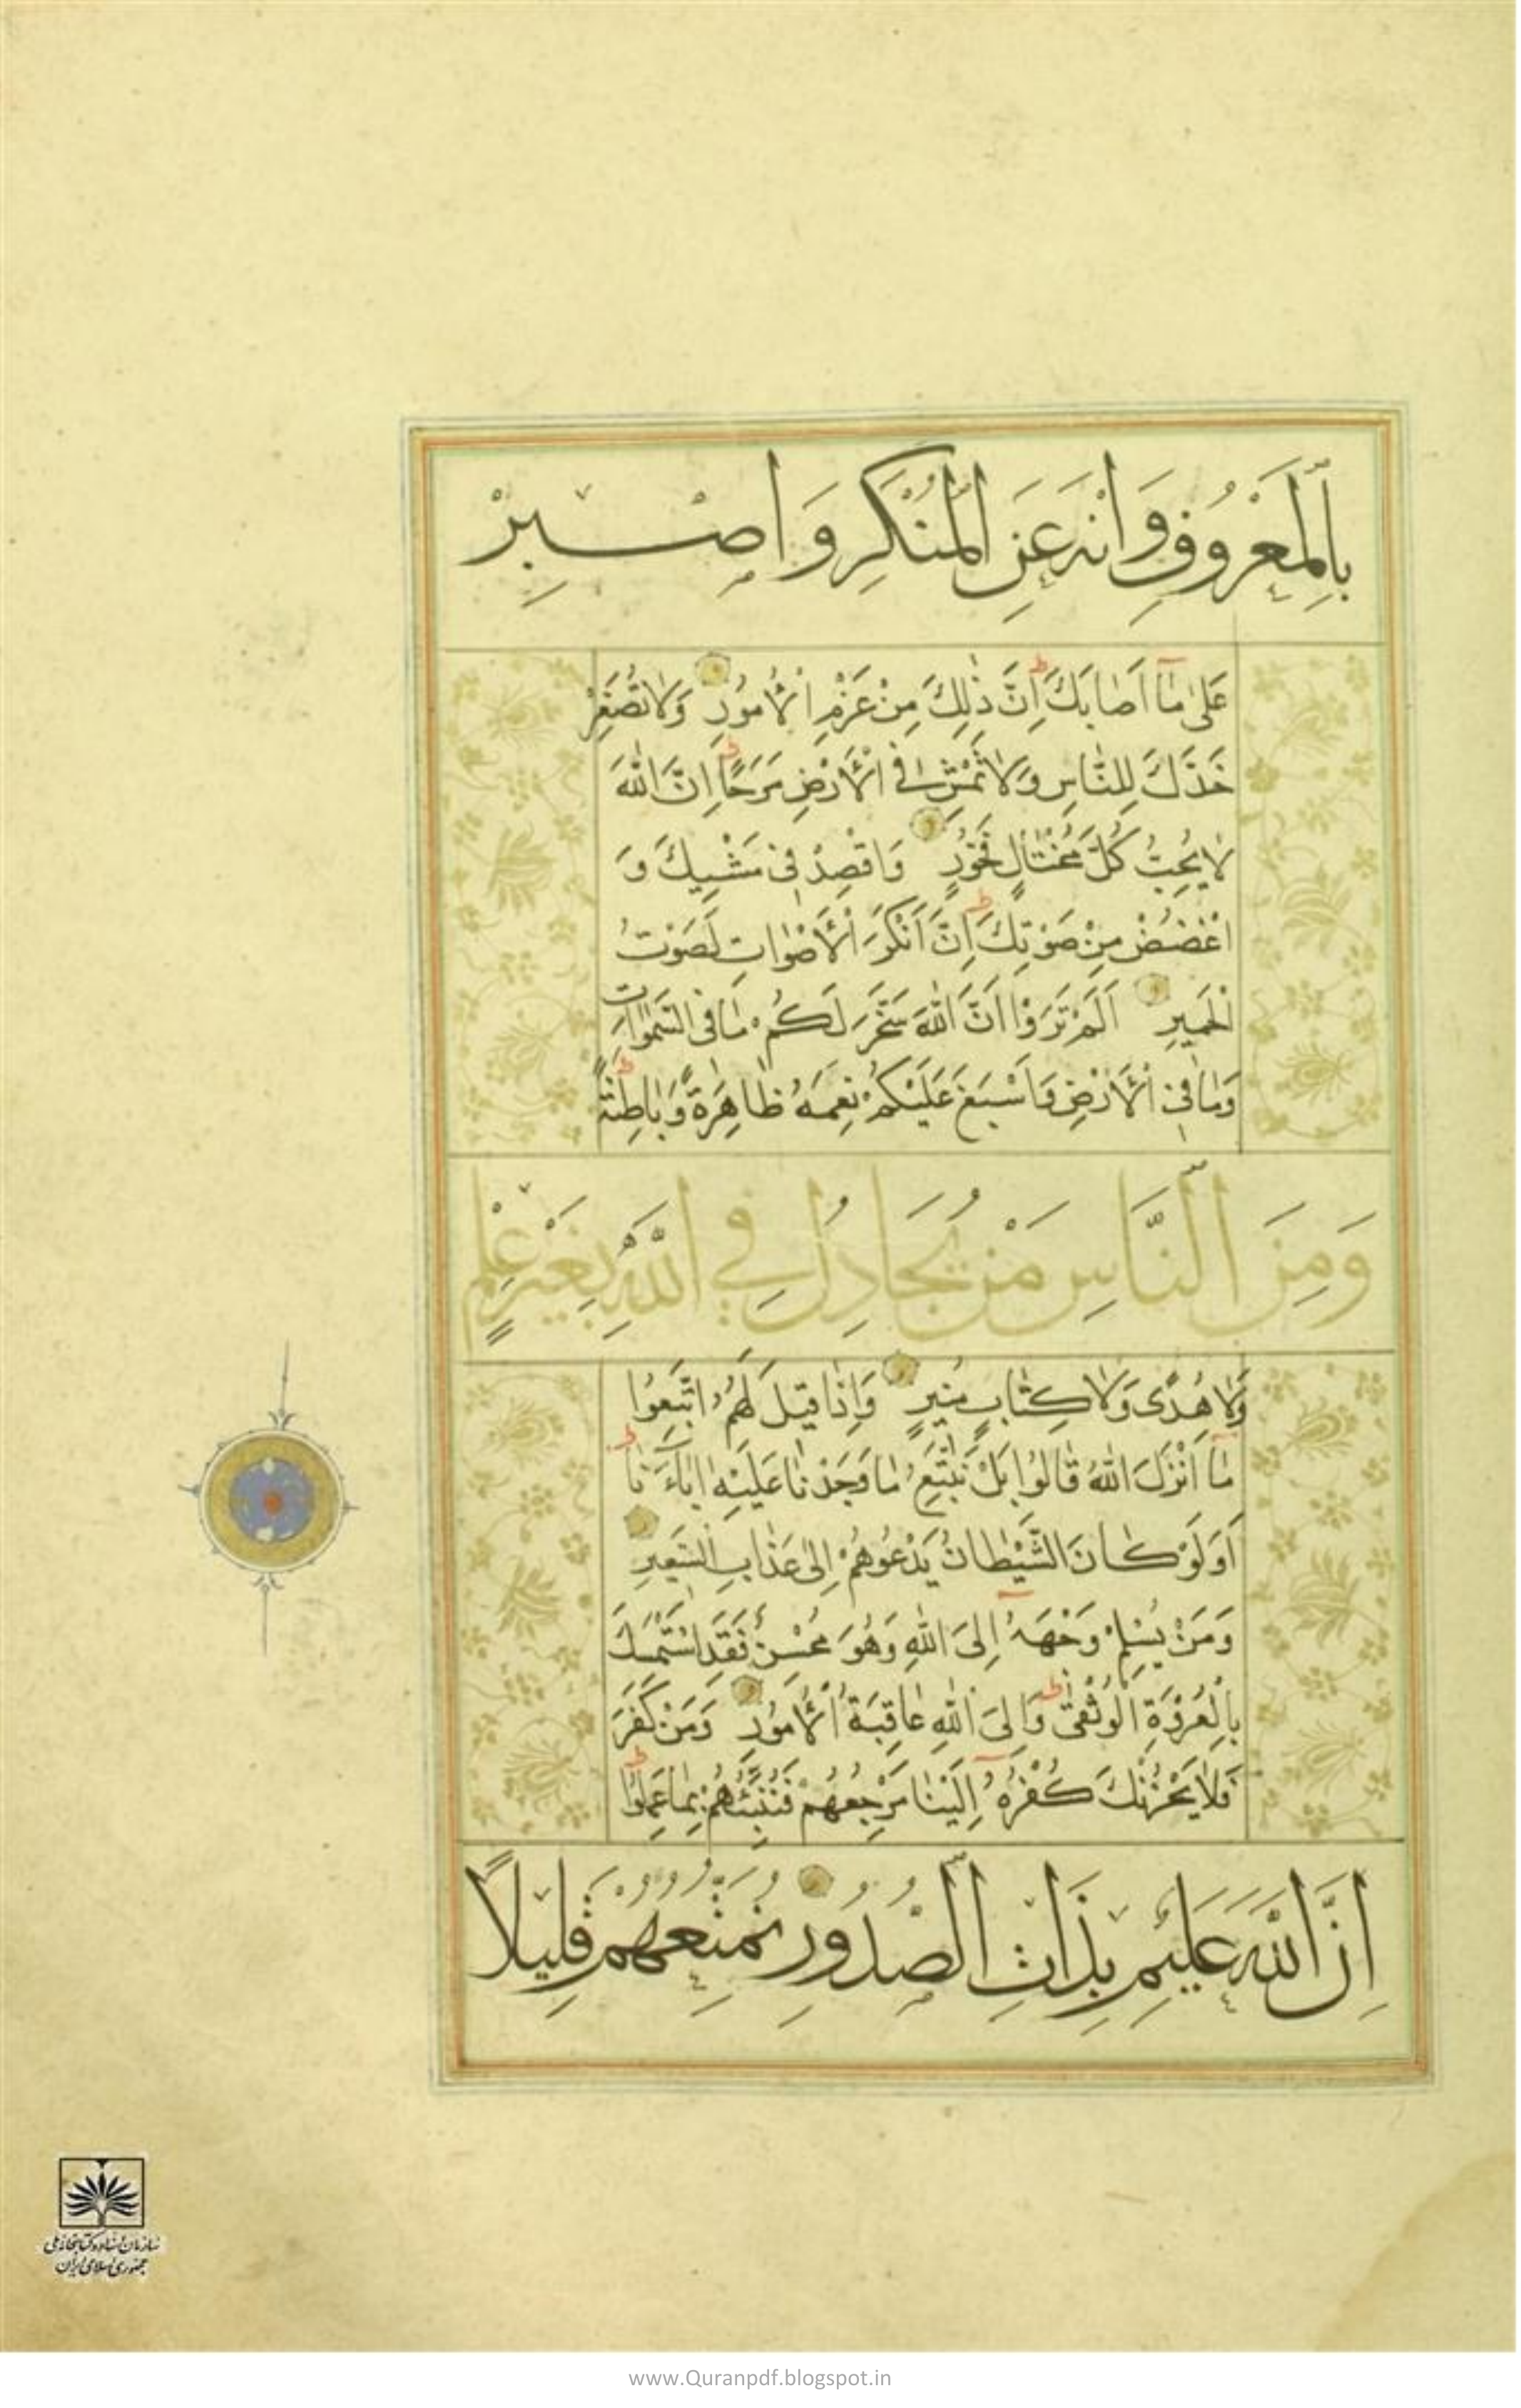 بِالْمَعْرُوفِ وَانْهَ عَنِ الْمُنْكَرِ وَاصْبِرْ
عَلىٰ مٰا اَصٰابَكَ اِنَّ ذٰلِكَ مِنْ عَزْمِ الْاُمُورِ وَلٰا تُصَعِّرْ
خَدَّكَ لِلنّٰاسِ وَلٰا تَمْشِ فِي الْاَرْضِ مَرَحًا اِنَّ اللّٰهَ
لٰا يُحِبُّ كُلَّ مُخْتٰالٍ فَخُورٍ وَاقْصِدْ فِي مَشْيِكَ وَ
اغْضُضْ مِنْ صَوْتِكَ اِنَّ اَنْكَرَ الْاَصْوٰاتِ لَصَوْتُ
الْحَمِيرِ اَلَمْ تَرَوْا اَنَّ اللّٰهَ سَخَّرَ لَكُمْ مٰا فِي السَّمٰوٰاتِ
وَمٰا فِي الْاَرْضِ وَاَسْبَغَ عَلَيْكُمْ نِعَمَهُ ظٰاهِرَةً وَبٰاطِنَةً
وَمِنَ النَّاسِ مَنْ يُجَادِلُ فِي اللَّهِ بِغَيْرِ عِلْمٍ
وَلٰا هُدًى وَلٰا كِتٰابٍ مُنِيرٍ وَاِذٰا قِيلَ لَهُمُ اتَّبِعُوا
مٰا اَنْزَلَ اللّٰهُ قٰالُوا بَلْ نَتَّبِعُ مٰا وَجَدْنٰا عَلَيْهِ اٰبٰاءَنٰا
اَوَلَوْ كٰانَ الشَّيْطٰانُ يَدْعُوهُمْ اِلىٰ عَذٰابِ السَّعِيرِ
وَمَنْ يُسْلِمْ وَجْهَهُ اِلَى اللّٰهِ وَهُوَ مُحْسِنٌ فَقَدِ اسْتَمْسَكَ
بِالْعُرْوَةِ الْوُثْقىٰ وَاِلَى اللّٰهِ عٰاقِبَةُ الْاُمُورِ وَمَنْ كَفَرَ
فَلٰا يَحْزُنْكَ كُفْرُهُ اِلَيْنٰا مَرْجِعُهُمْ فَنُنَبِّئُهُمْ بِمٰا عَمِلُوا
اِنَّ اللَّهَ عَلِيمٌ بِذَاتِ الصُّدُورِ نُمَتِّعُهُمْ قَلِيلًا
سازمان اسناد و کتابخانه ملی
جمهوری اسلامی ایران
www.Quranpdf.blogspot.in